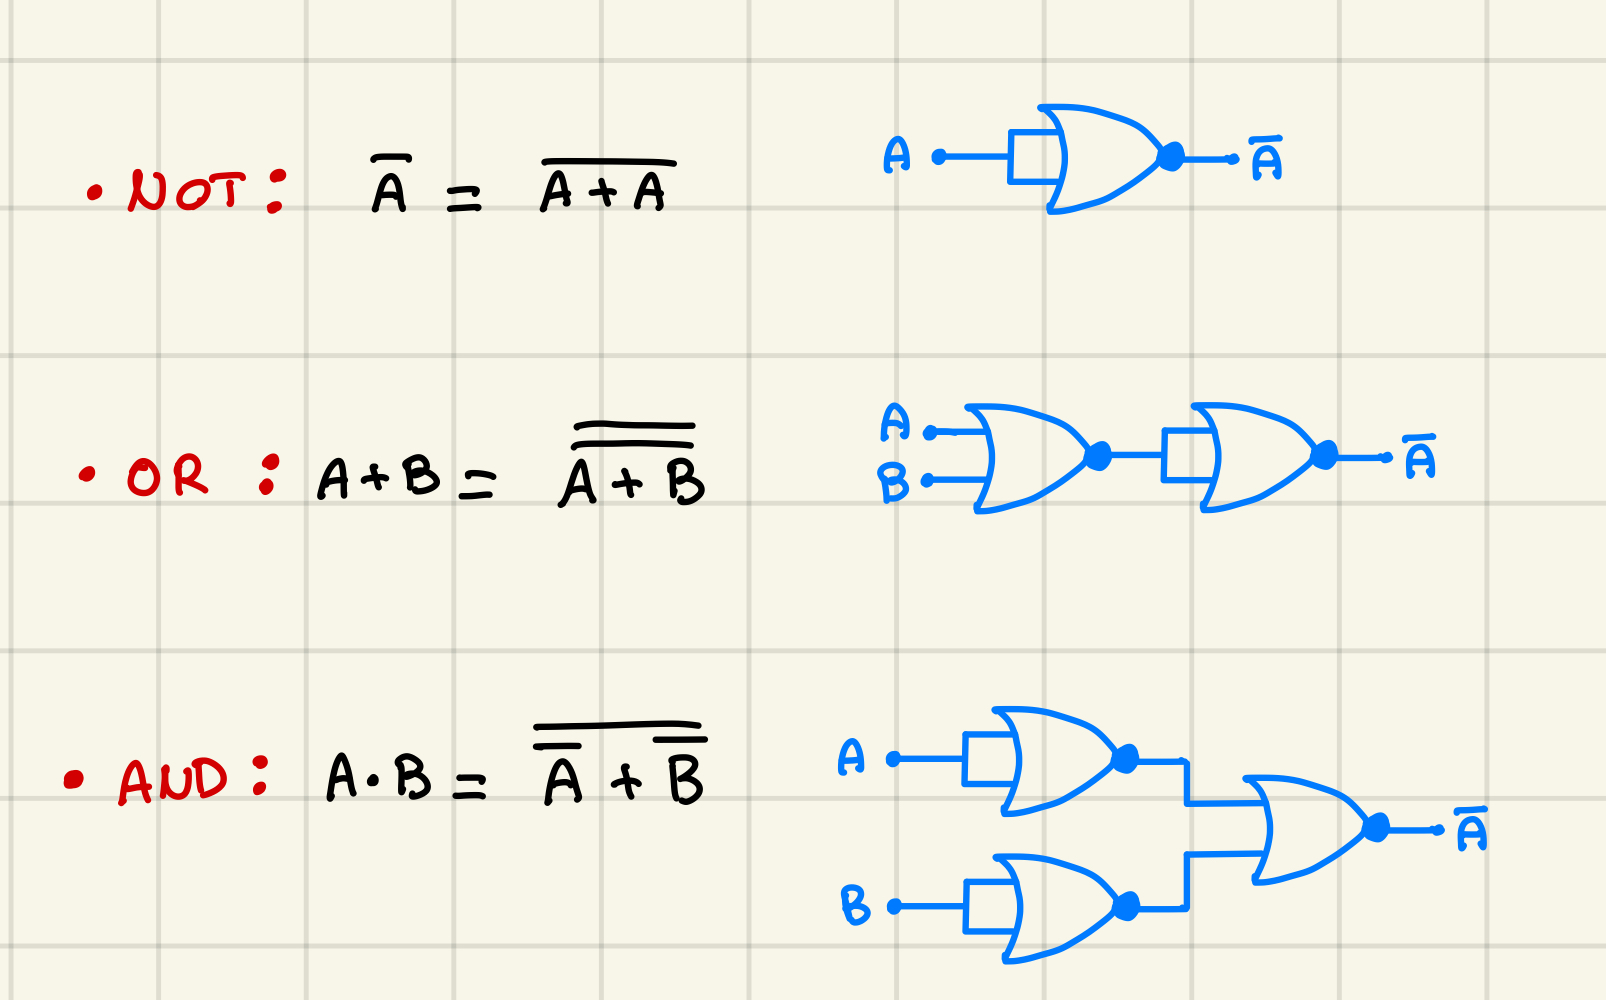 • NOT: A̅ = \overline{A + A} A A̅
• OR : A + B = \overline{\overline{A + B}} A B A̅
• AND: A · B = \overline{\overline{A} + \overline{B}} A B A̅